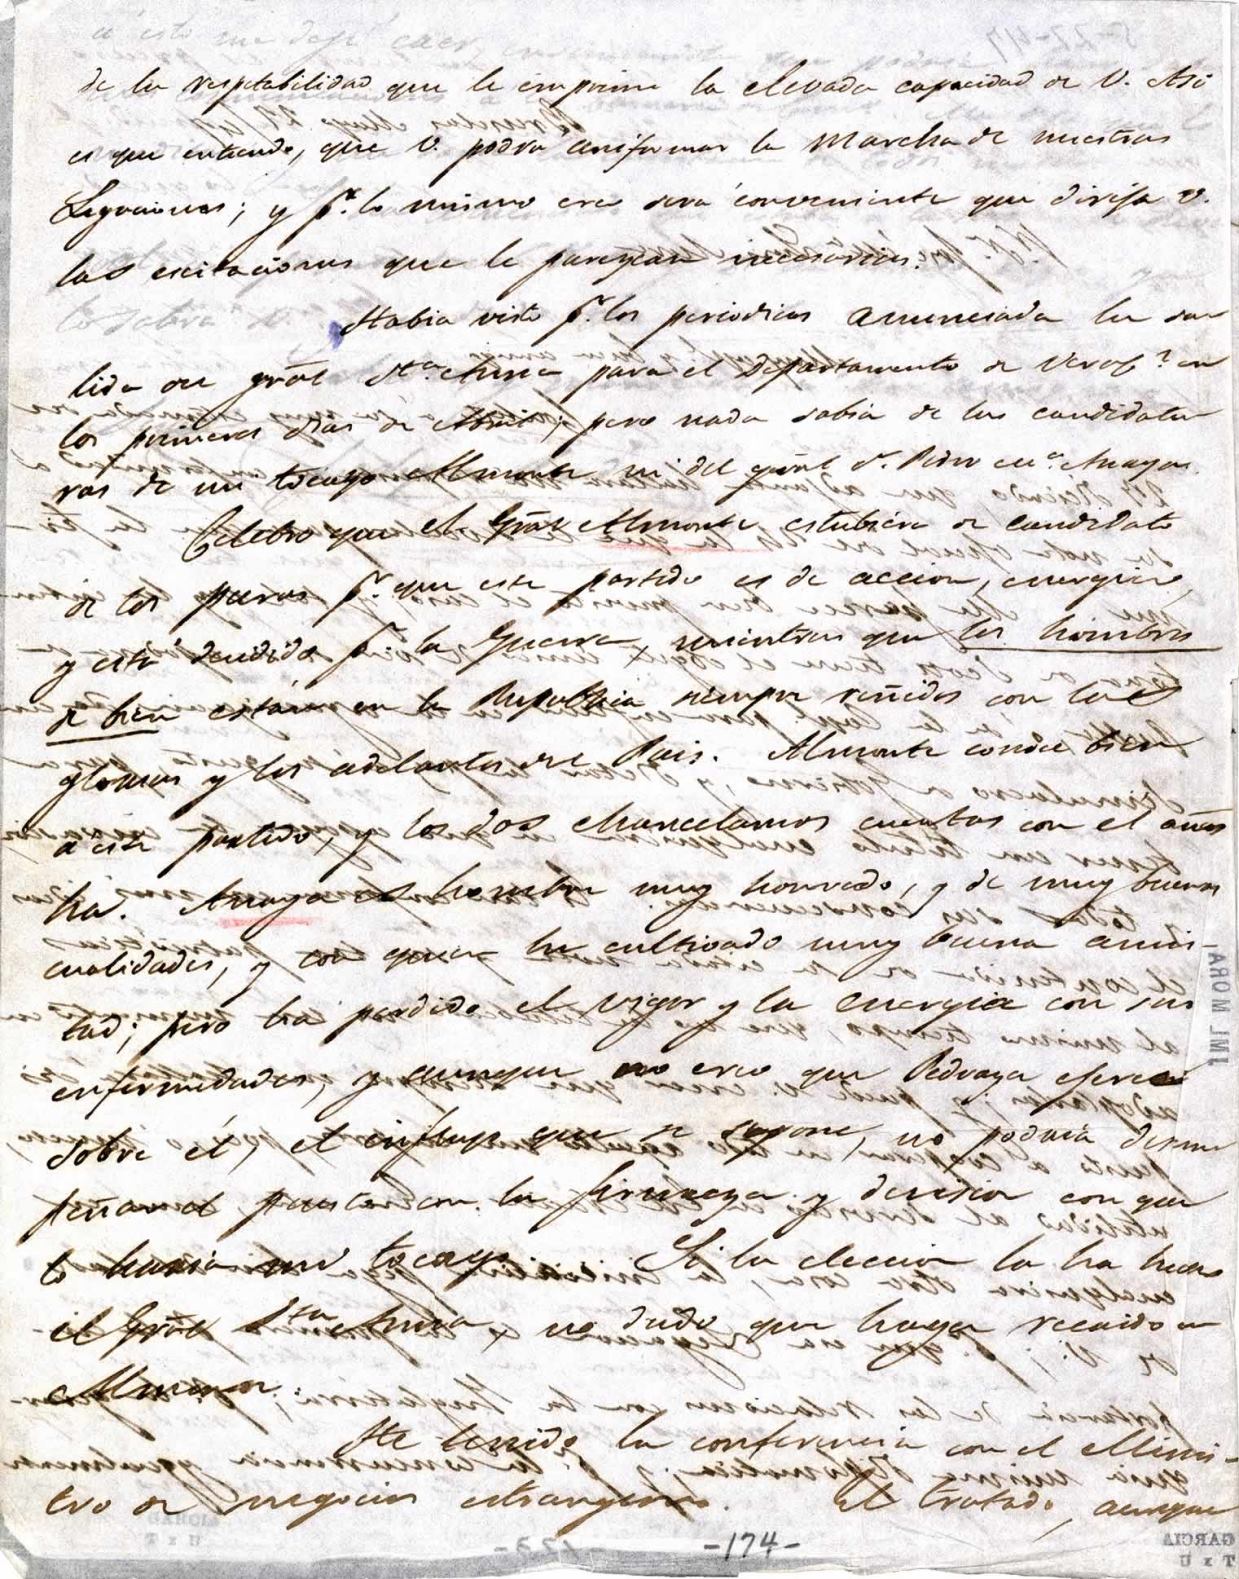 de la respetabilidad que le imprime la elevada capacidad de V. Asi
es que entiendo, que V. podrá uniformar la Marcha de nuestras
Legaciones; y p.r lo mismo creo será conveniente que dirija V.
las escitaciones que le parezcan necesarias.
Habia visto p.r los periodicos anunciada la sa
lida del gral Sta. Anna para el Departamento de Verac.z en
los primeros dias de Abril; pero nada sabia de las candidatu
ras de mi tocayo Almonte ni del gral D. Pedro Ma. Anaya.
Celebro que el Gral Almonte estubiera de candidato
de los puros p.r que este partido es de accion, energia,
y está decidido p.r la Guerra, mientras que los hombres
de bien están en la Republica siempre reñidos con las
glorias y los adelantos del Pais. Almonte conoce bien
a este partido, y los dos chancelamos cuentas con el años
ha. Anaya es hombre muy honrado, y de muy buenas
cualidades, y con quien he cultivado muy buena amis-
tad; pero ha perdido el vigor y la energia con sus
enfermedades, y aunque no creo que Pedraza ejerce
sobre él, el influjo que se supone, no podria desem
peñar el puesto con la firmeza y decision con que
lo haria mi tocayo. Si la eleccion la ha hecho
el Gral Sta Anna, no dudo que haya recaido en
Almonte.
He tenido la conferencia con el Minis-
tro de negocios estrangeros. El tratado, aunque
-174-
JIM MORA
GARCIA